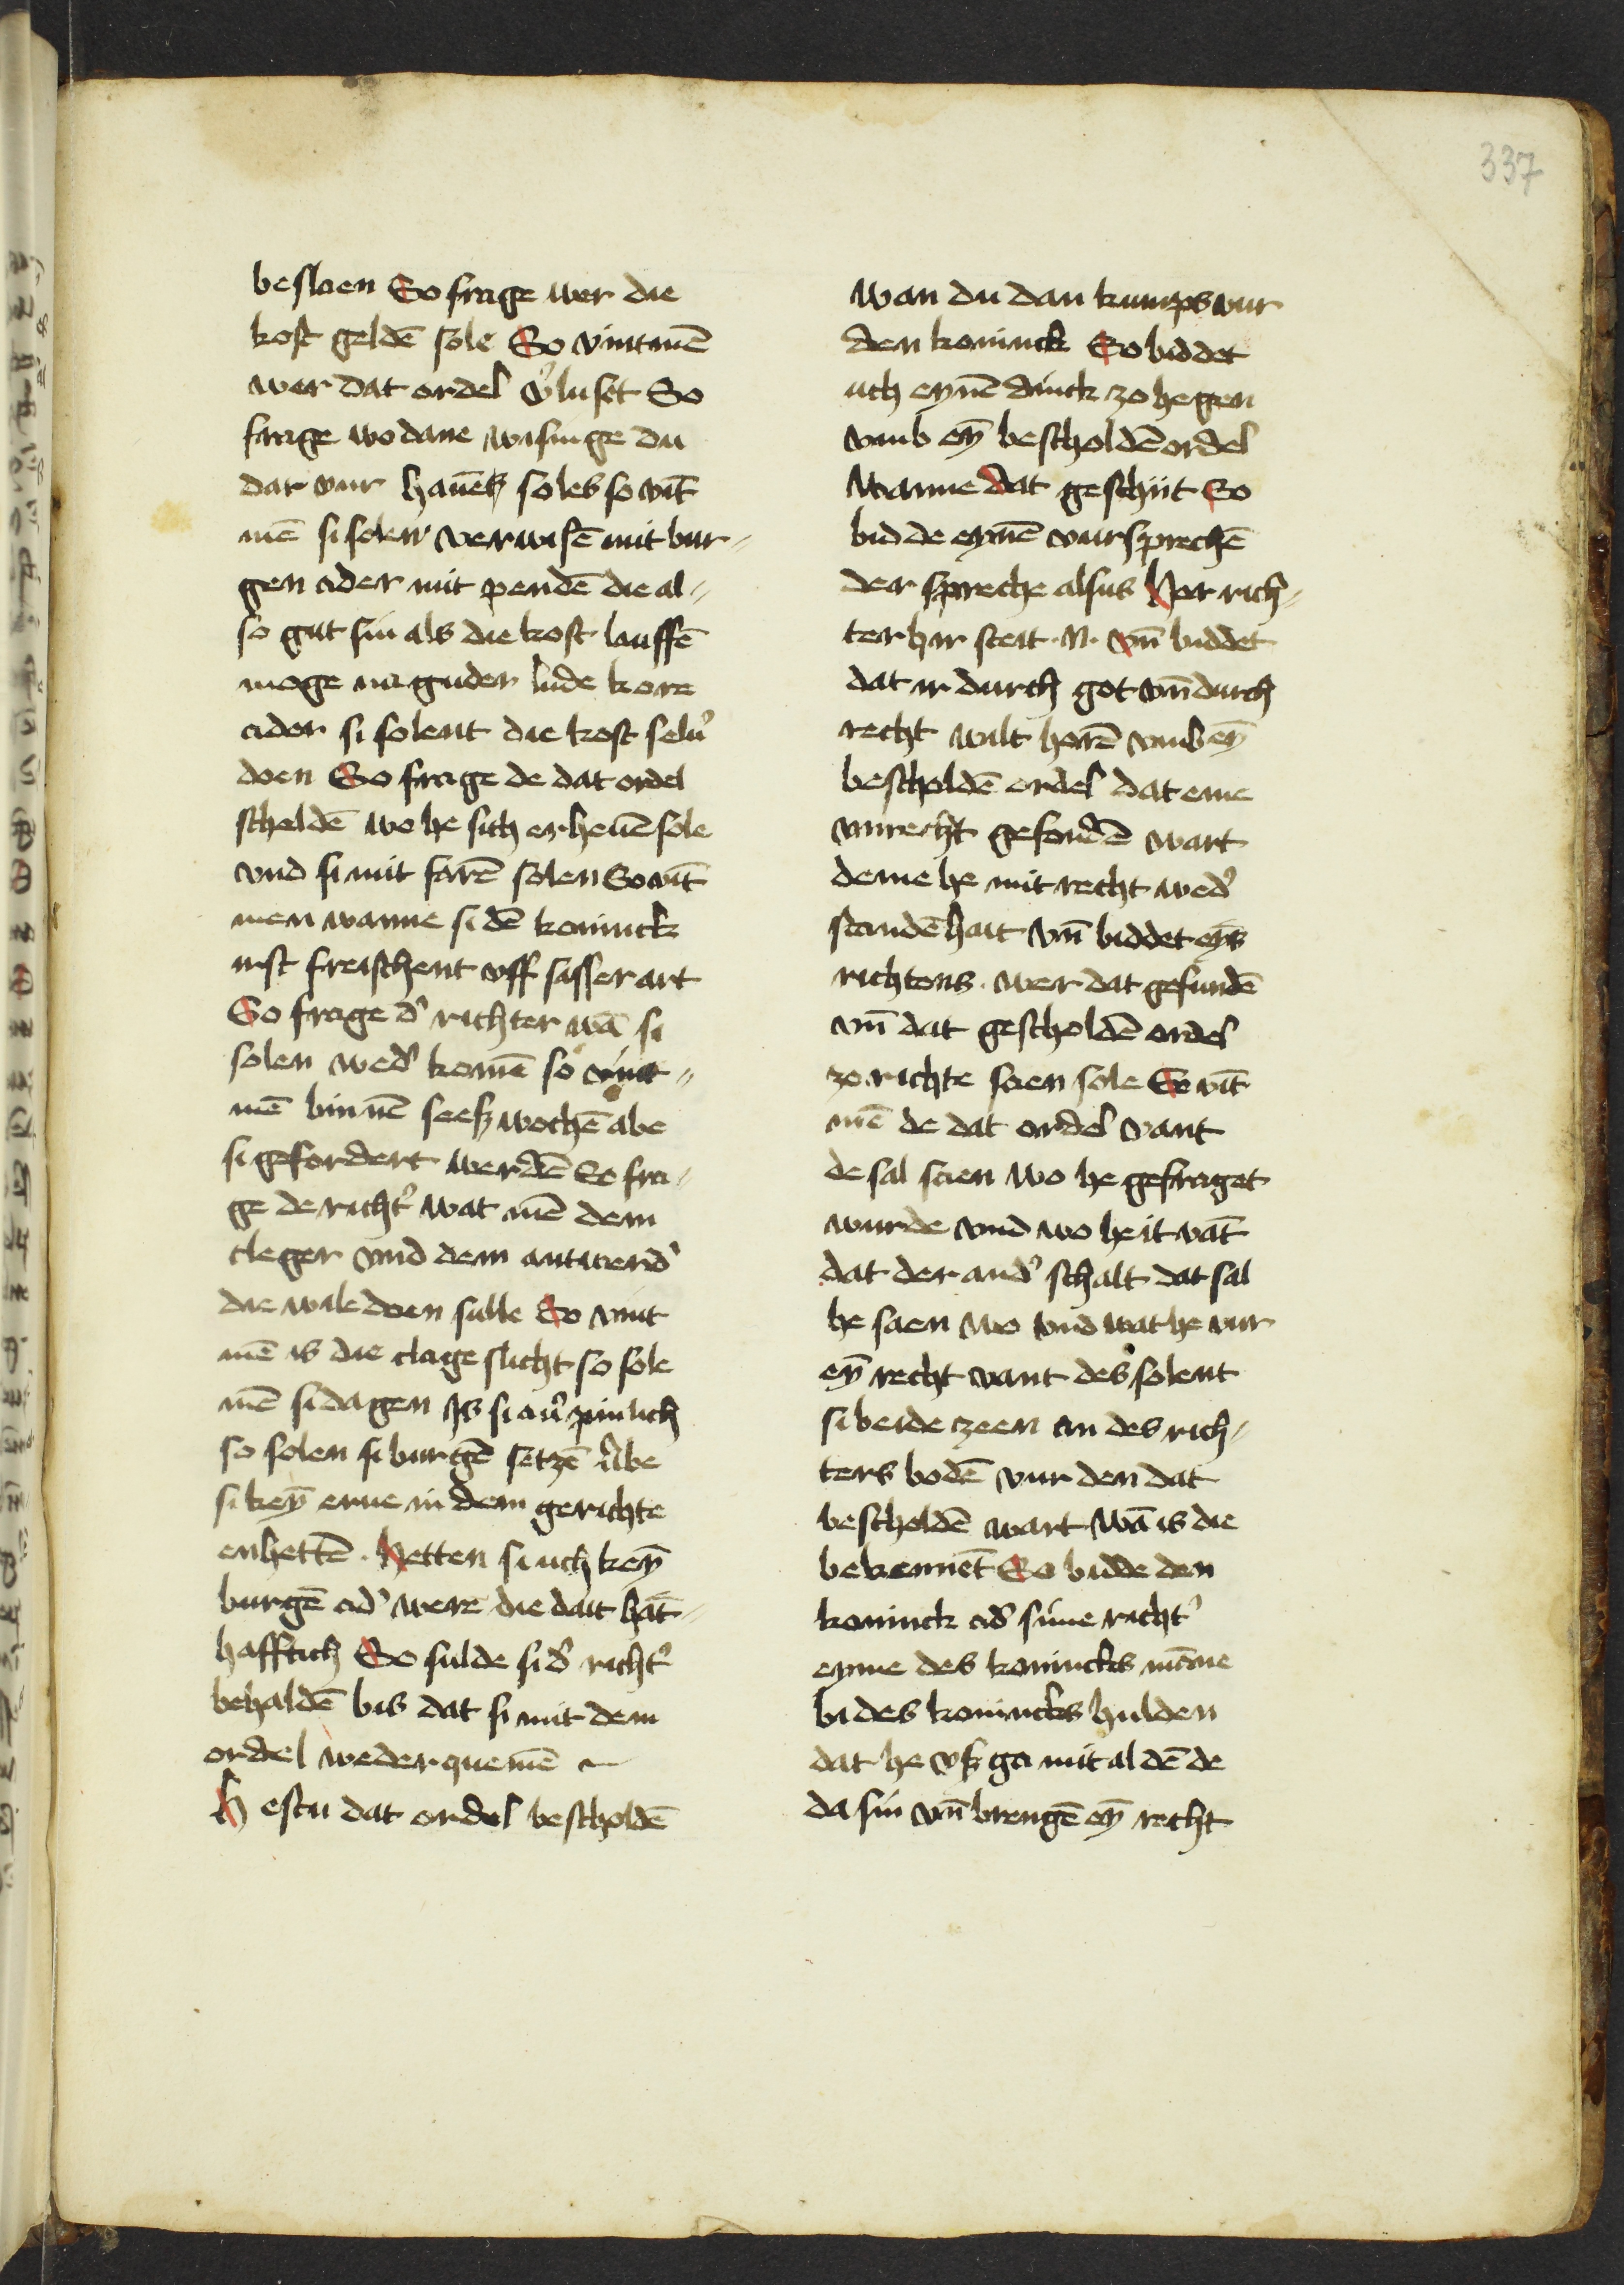 337
beslaen So frage wer die
kost geldē sole So vintmē
wer dat ordel v͛luset So
frage wodane wisinge du
dar vur hauēß soles so vīt
mē si solen verwisē mit bur⸗
gen ader mit pendē die al⸗
so gut sin als die kost lauffē
moge na guder lude kore
ader si solent die kost selu͛
doen So frage de dat ordel
scheldē wo he sich erheuē sole
vnd si mit farē solen So vīt
men wanne si dē koninck
irst freischent vff sasser art
So frage d͛ richter wā si
solen wed͛ komē so vint⸗
mē binnē seeß wochē abe
si gefordert werdē So fra⸗
ge de richt͛ wat mē dem
cleger vnd dem antwerd͛
die wile doen sulle So vint
mē is die clage slicht so sole
mē si dagen Js si au͛ pinlich
so solen si burgē setzē Abe
si keyn̄ erue in dem gerichte
enhettē . Hetten si uch keyn̄
burgē ad͛ were die dait hāt⸗
hafftich So sulde si d͛ richt͛
behaldē bis dat si mit dem
ordel weder quemē
Hestu dat ordel bescholdē
wan du dan kumps vur
den koninck So biddet
uch eynē dinck zo hegen
vmb eyn̄ bescholdē ordel
Wanne dat geschiit So
bidde eynē vursprechē
der spreche alsus Her rich⸗
ter hir steit .N. vn̄ biddet
dat ir durch got vn̄ durch
recht wilt horē vmb eyn̄
bescholdē ordel dat eme
vnrecht gefondē wart
deme he mit recht wed͛
standē hait vn̄ biddet eyns
richtens . wer dat gefundē
vn̄ dat gescholdē ordel
zo richte saen sole So vīt
mē de dat ordel vant
de sal saen wo he gefraget
wurde vnd wo he it vāt
dat der and͛ schalt dat sal
he saen wo vnd wat he vur
eyn̄ recht vant des solent
si beide zeen an des rich⸗
ters bodē vur den dat
bescholdē wart Wā is die
bekennēt So bidde den
koninck ad͛ sine richt͛
eyme des konincks māne
bi des konincks hulden
dat he vß ga mit al dē de
da sin vn̄ brengē eyn̄ recht